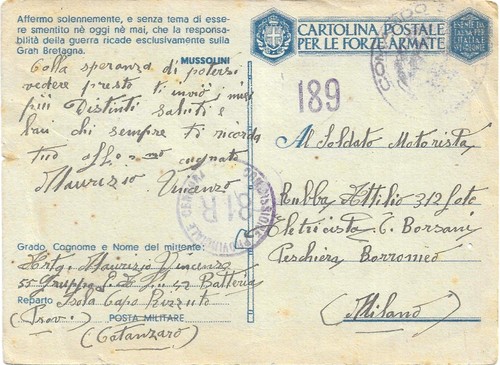 Affermo solennemente, e senza tema di esse-
re smentito nè oggi nè mai, che la responsa-
bilità della guerra ricade esclusivamente sulla
Gran Bretagna.
MUSSOLINI
Colla speranza di potersi
vedere presto ti invio i miei
più Distinti saluti e
baci chi sempre ti ricorda
tuo aff.mo cognato
Maurizio Vincenzo
Grado, Cognome e Nome del mittente:
Maurizio Vincenzo
55 Gruppo Batteria
Reparto Isola Capo Rizzuto
(Prov.) POSTA MILITARE
(Catanzaro)
CARTOLINA POSTALE
PER LE FORZE ARMATE
189
Al Soldato Motorista
Rubbra Attilio 312 Foto
Eletricista C. Borsani
Peschiera Borromeo
(Milano)
COMMISSIONE PROVINCIALE CENSURA
81 R